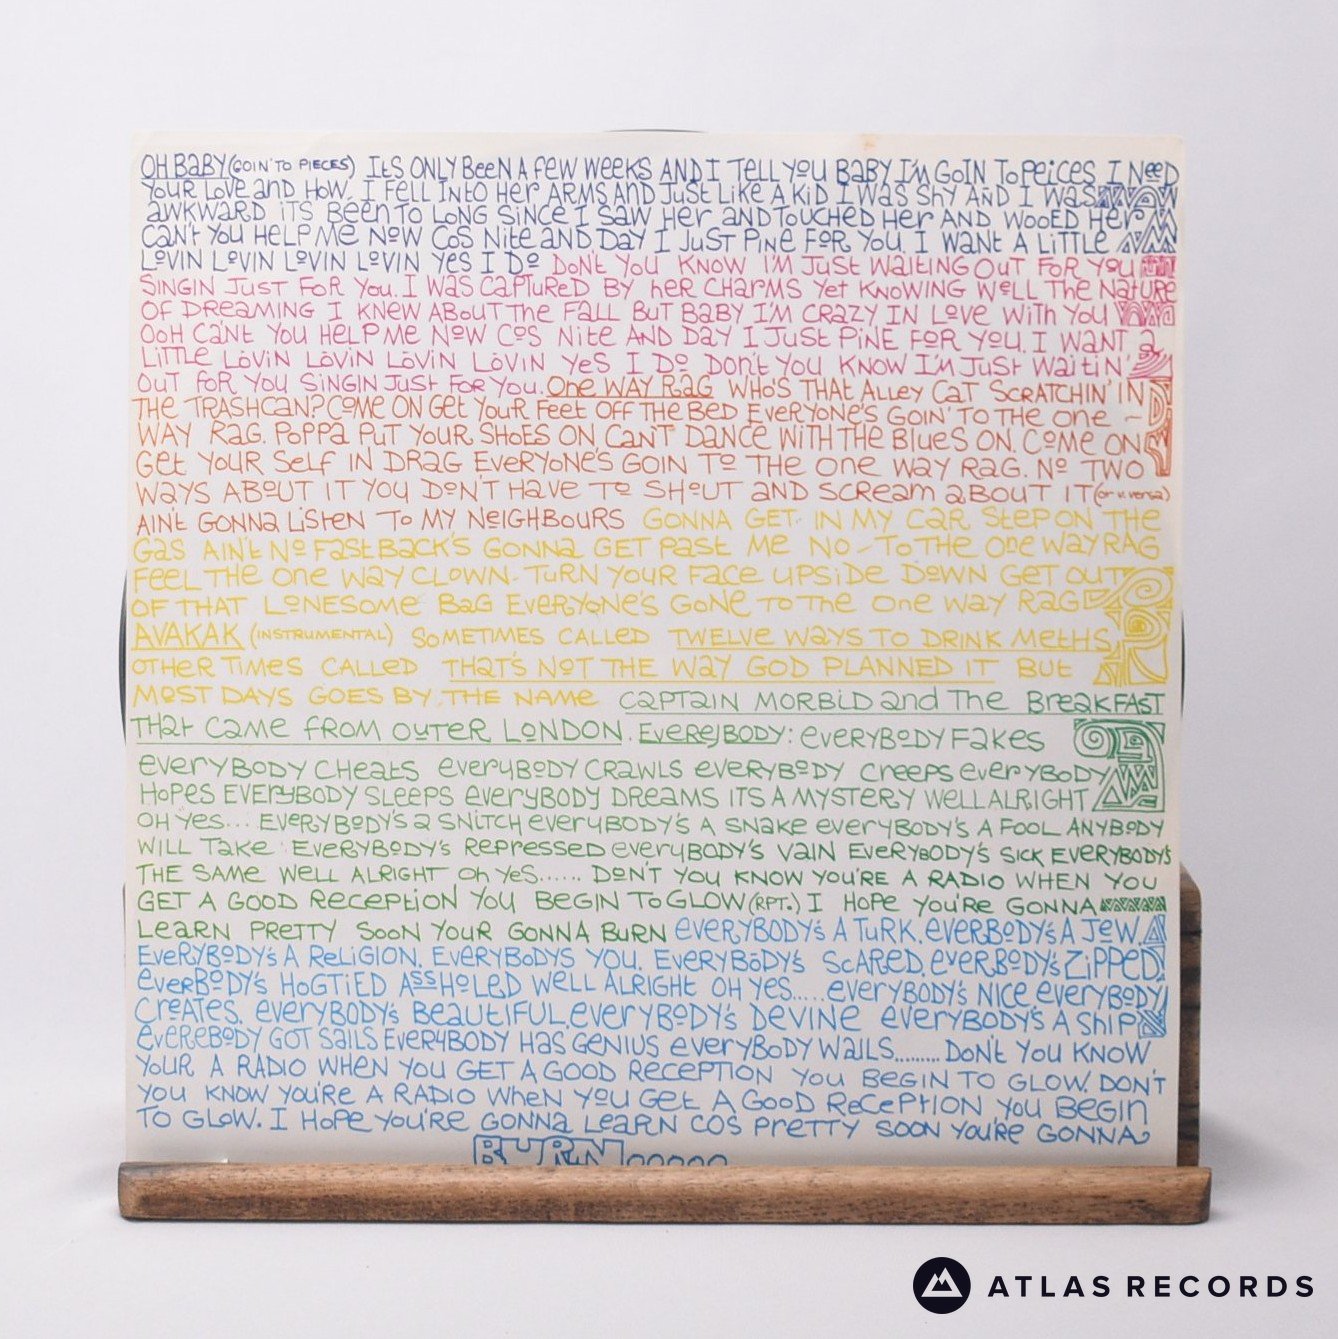 OH BABY (GOIN' TO PIECES) ITS ONLY BEEN A FEW WEEKS AND I TELL YOU BABY I'M GOIN TO PEICES I NEED
YOUR LOVE and HOW. I FELL INTO HER ARMS AND JUST LIKE A KID I WAS SHY AND I WAS
AWKWARD ITS BEEN TO LONG SINCE I SAW HER AND TOUCHED HER AND WOOED HER
CAN'T YOU HELP ME NOW COS NITE AND DAY I JUST PINE FOR YOU I WANT A LITTLE
LOVIN LOVIN LOVIN LOVIN YES I DO DON'T YOU KNOW I'M JUST WAITING OUT FOR YOU
SINGIN JUST FOR YOU. I WAS CAPTURED BY HER CHARMS YET KNOWING WELL THE NATURE
OF DREAMING I KNEW ABOUT THE FALL BUT BABY I'M CRAZY IN LOVE WITH YOU
OOH CA'NT YOU HELP ME NOW COS NITE AND DAY I JUST PINE FOR YOU. I WANT A
LITTLE LOVIN LOVIN LOVIN LOVIN YES I DO DON'T YOU KNOW I'M JUST WAITIN'
OUT FOR YOU SINGIN JUST FOR YOU. ONE WAY RAG WHO'S THAT ALLEY CAT SCRATCHIN' IN
THE TRASHCAN? COME ON GET YOUR FEET OFF THE BED EVERYONE'S GOIN' TO THE ONE -
WAY RAG. POPPA PUT YOUR SHOES ON CAN'T DANCE WITH THE BLUES ON. COME ON
GET YOUR SELF IN DRAG EVERYONE'S GOIN TO THE ONE WAY RAG. NO TWO
WAYS ABOUT IT YOU DON'T HAVE TO SHOUT AND SCREAM ABOUT IT (or v. versa)
AIN'T GONNA LISTEN TO MY NEIGHBOURS GONNA GET IN MY CAR STEP ON THE
GAS AIN'T NO FASTBACK'S GONNA GET PAST ME NO - TO THE ONE WAY RAG
FEEL THE ONE WAY CLOWN - TURN YOUR FACE UPSIDE DOWN GET OUT
OF THAT LONESOME BAG EVERYONE'S GONE TO THE ONE WAY RAG
AVAKAK (INSTRUMENTAL) SOMETIMES CALLED TWELVE WAYS TO DRINK METHS,
OTHER TIMES CALLED THAT'S NOT THE WAY GOD PLANNED IT BUT
MOST DAYS GOES BY THE NAME CAPTAIN MORBID and THE BREAKFAST
THAT CAME FROM OUTER LONDON. EVEREJBODY: EVERYBODY FAKES
EVERYBODY CHEATS EVERYBODY CRAWLS EVERYBODY CREEPS EVERYBODY
HOPES EVERYBODY SLEEPS EVERYBODY DREAMS ITS A MYSTERY WELL ALRIGHT
OH YES... EVERYBODY'S A SNITCH EVERYBODY'S A SNAKE EVERYBODY'S A FOOL ANYBODY
WILL TAKE EVERYBODY'S REPRESSED EVERYBODY'S VAIN EVERYBODY'S SICK EVERYBODY'S
THE SAME WELL ALRIGHT OH YES...... DON'T YOU KNOW YOU'RE A RADIO WHEN YOU
GET A GOOD RECEPTION YOU BEGIN TO GLOW (RPT.) I HOPE YOU'RE GONNA
LEARN PRETTY SOON YOUR GONNA BURN EVERYBODY'S A TURK. EVERBODY'S A JEW.
EVERYBODY'S A RELIGION. EVERYBODYS YOU. EVERYBODY'S SCARED. EVERBODY'S ZIPPED.
EVERBODY'S HOGTIED ASSHOLED WELL ALRIGHT OH YES..... EVERYBODY'S NICE EVERYBODY
CREATES. EVERYBODY'S BEAUTIFUL. EVERYBODY'S DEVINE EVERYBODY'S A SHIP
EVEREBODY GOT SAILS EVERYBODY HAS GENIUS EVERYBODY WAILS......... DON'T YOU KNOW
YOUR A RADIO WHEN YOU GET A GOOD RECEPTION YOU BEGIN TO GLOW. DON'T
YOU KNOW YOU'RE A RADIO WHEN YOU GET A GOOD RECEPTION YOU BEGIN
TO GLOW. I HOPE YOU'RE GONNA LEARN COS PRETTY SOON YOU'RE GONNA
BURN oooooo
ATLAS RECORDS